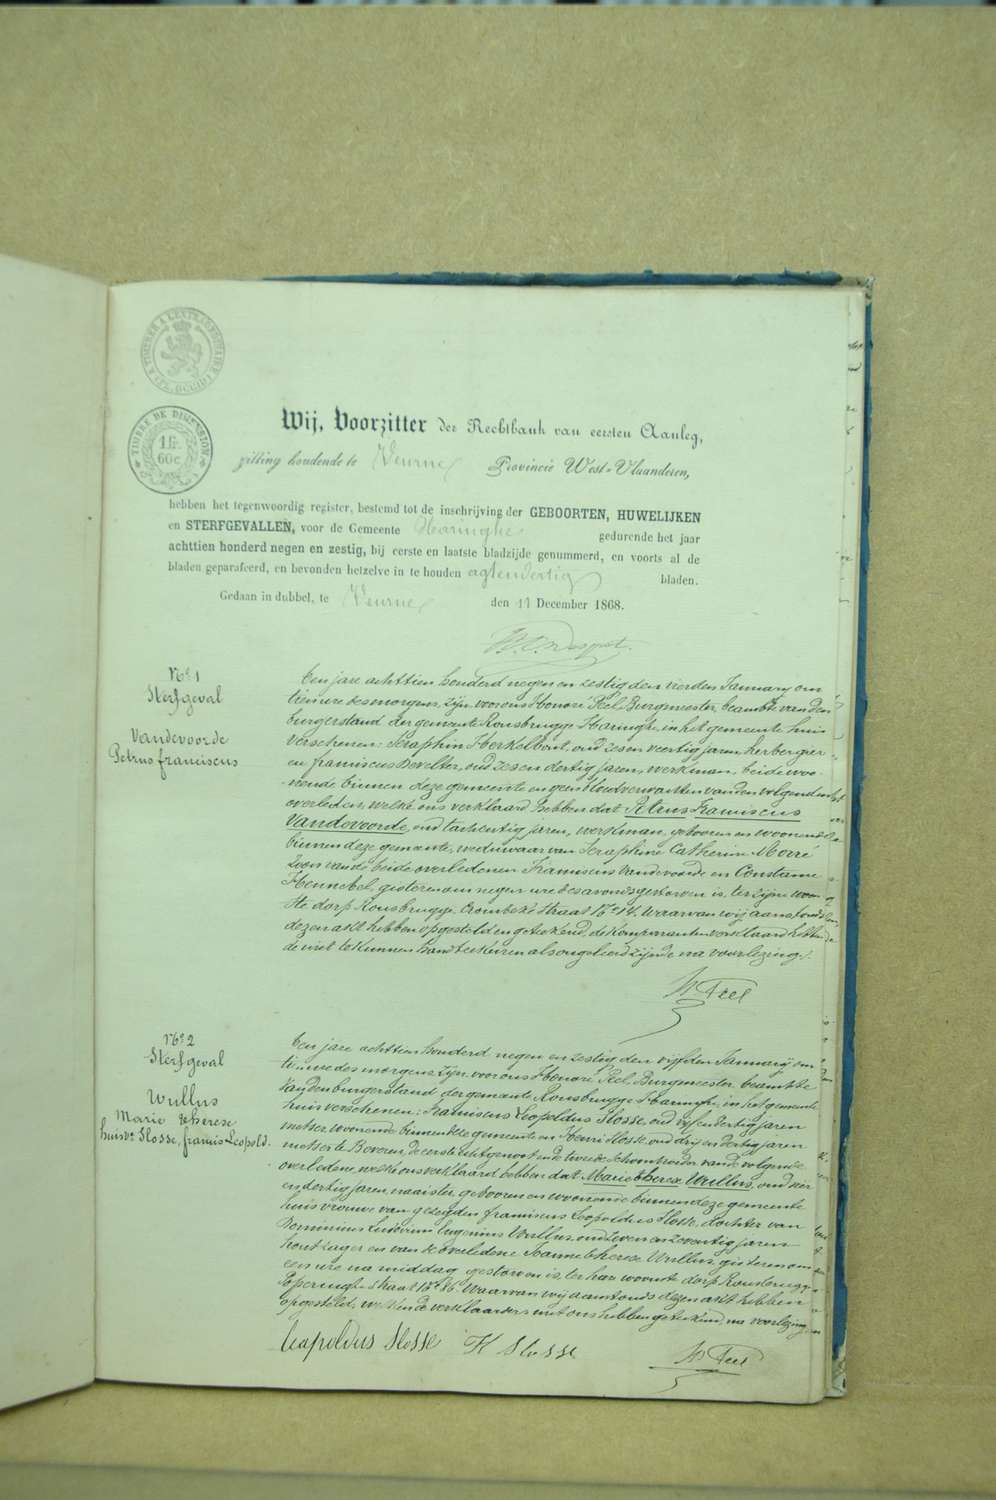 TIMBRE DE DIMENSION
1 F.
60 c
Wij, Voorzitter der Rechtbank van eersten Aanleg,
zitting houdende te Veurne Provincie West-Vlaanderen,
hebben het tegenwoordig register, bestemd tot de inschrijving der GEBOORTEN, HUWELIJKEN
en STERFGEVALLEN, voor de Gemeente Haringhe gedurende het jaar
achttien honderd negen en zestig, bij eerste en laatste bladzijde genummerd, en voorts al de
bladen geparafeerd, en bevonden hetzelve in te houden agtendertig bladen.
Gedaan in dubbel, te Veurne den 11 December 1868.
N° 1
Sterfgeval
Vandevoorde
Petrus franciscus
Ten jare achttien honderd negen en zestig den vierden January om
tien ure des morgens, zijn voor ons Honoré Feel, Burgmeester, beambte van den
burgerstand der gemeente Rousbrugge Haringhe, in het gemeente huis
verschenen: Seraphin Herkelbout, oud zes en veertig jaren, herbergier
en franciscus Develter, oud zes en dertig jaren, werkman, beide woo-
nende binnen deze gemeente en geen bloedverwanten van den volgenden
overleden, welke ons verklaard hebben dat Petrus Franciscus
Vandevoorde, oud tachentig jaren, werkman, gebooren en woonende
binnen deze gemeente, weduwaar van Seraphine Catherine Morré
Zoon van de beide overledenen Franciscus Vandevoorde en Constance
Hennebel, gisteren om negen ure des avonds gestorven is, ter zijne woon-
ste dorp Rousbrugge, Crombeke straat N° 14. Waarvan wij aanstonds
dezen akt hebben opgesteld en geteekend, de Komparanten verklaard hebben
de niet te kunnen handteekenen als ongeleerd zijnde na voorlezing.
H. Feel
N° 2
Sterfgeval
Wullus
Marie therese
huisv. Slosse, francis Leopold.
Ten jare achttien honderd negen en zestig den vijfden January om
tien ure des morgens zijn voor ons Honoré Feel, Burgmeester beambte
van den burgerstand der gemeente Rousbrugge Haringhe, in het gemeente
huis verschenen: Franciscus Leopoldus Slosse, oud vijf en dertig jaren
metser, woonende binnen deze gemeente en Henri Slosse, oud drij en dertig jaren
metser te Beveren, de eerste echtgenoot en de tweede schoonbroeder van de volgende
overledene, welke ons verklaard hebben dat Marie therese Wullus, oud vier
en dertig jaren, naaister, gebooren en woonende binnen deze gemeente
huis vrouwe van gezegden franciscus Leopoldus Slosse, dochter van
Dominicus Ludovicus Eugenius Wullus, oud zeven en zeventig jaren
houtzager en van de overledene Joanne therese Wullus, gisteren om
een ure na middag gestorven is, ter hare woonste dorp Rousbrugge
Poperinghe straat N° 86. Waarvan wij aanstonds dezen akt hebben
opgesteld, welk de verklaarders met ons hebben geteekend, na voorlezing
Leopoldus Slosse H Slosse H. Feel